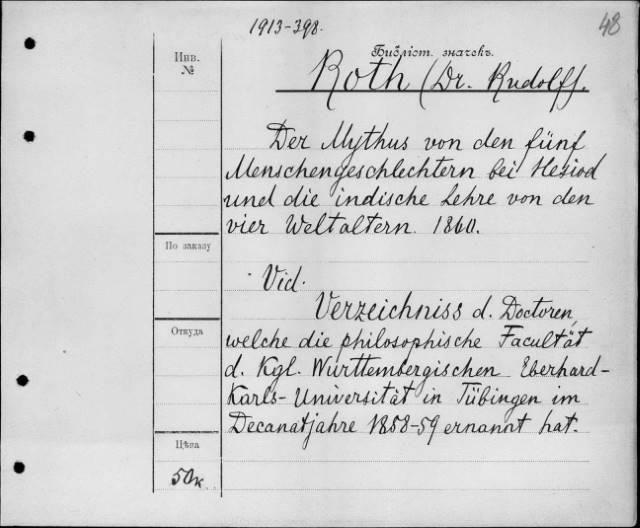 1913-398.
48
Библіот. значекъ.
Инв.
№
Roth (Dr. Rudolf).
Der Mythus von den fünf
Menschengeschlechtern bei Hesiod
und die indische Lehre von den
vier Weltaltern. 1860.
По заказу
Vid.
Verzeichniss d. Doctoren,
Откуда
welche die philosophische Facultät
d. Kgl. Württembergischen Eberhard-
Karls-Universität in Tübingen im
Decanatjahre 1858-59 ernannt hat.
Цѣна
50к.